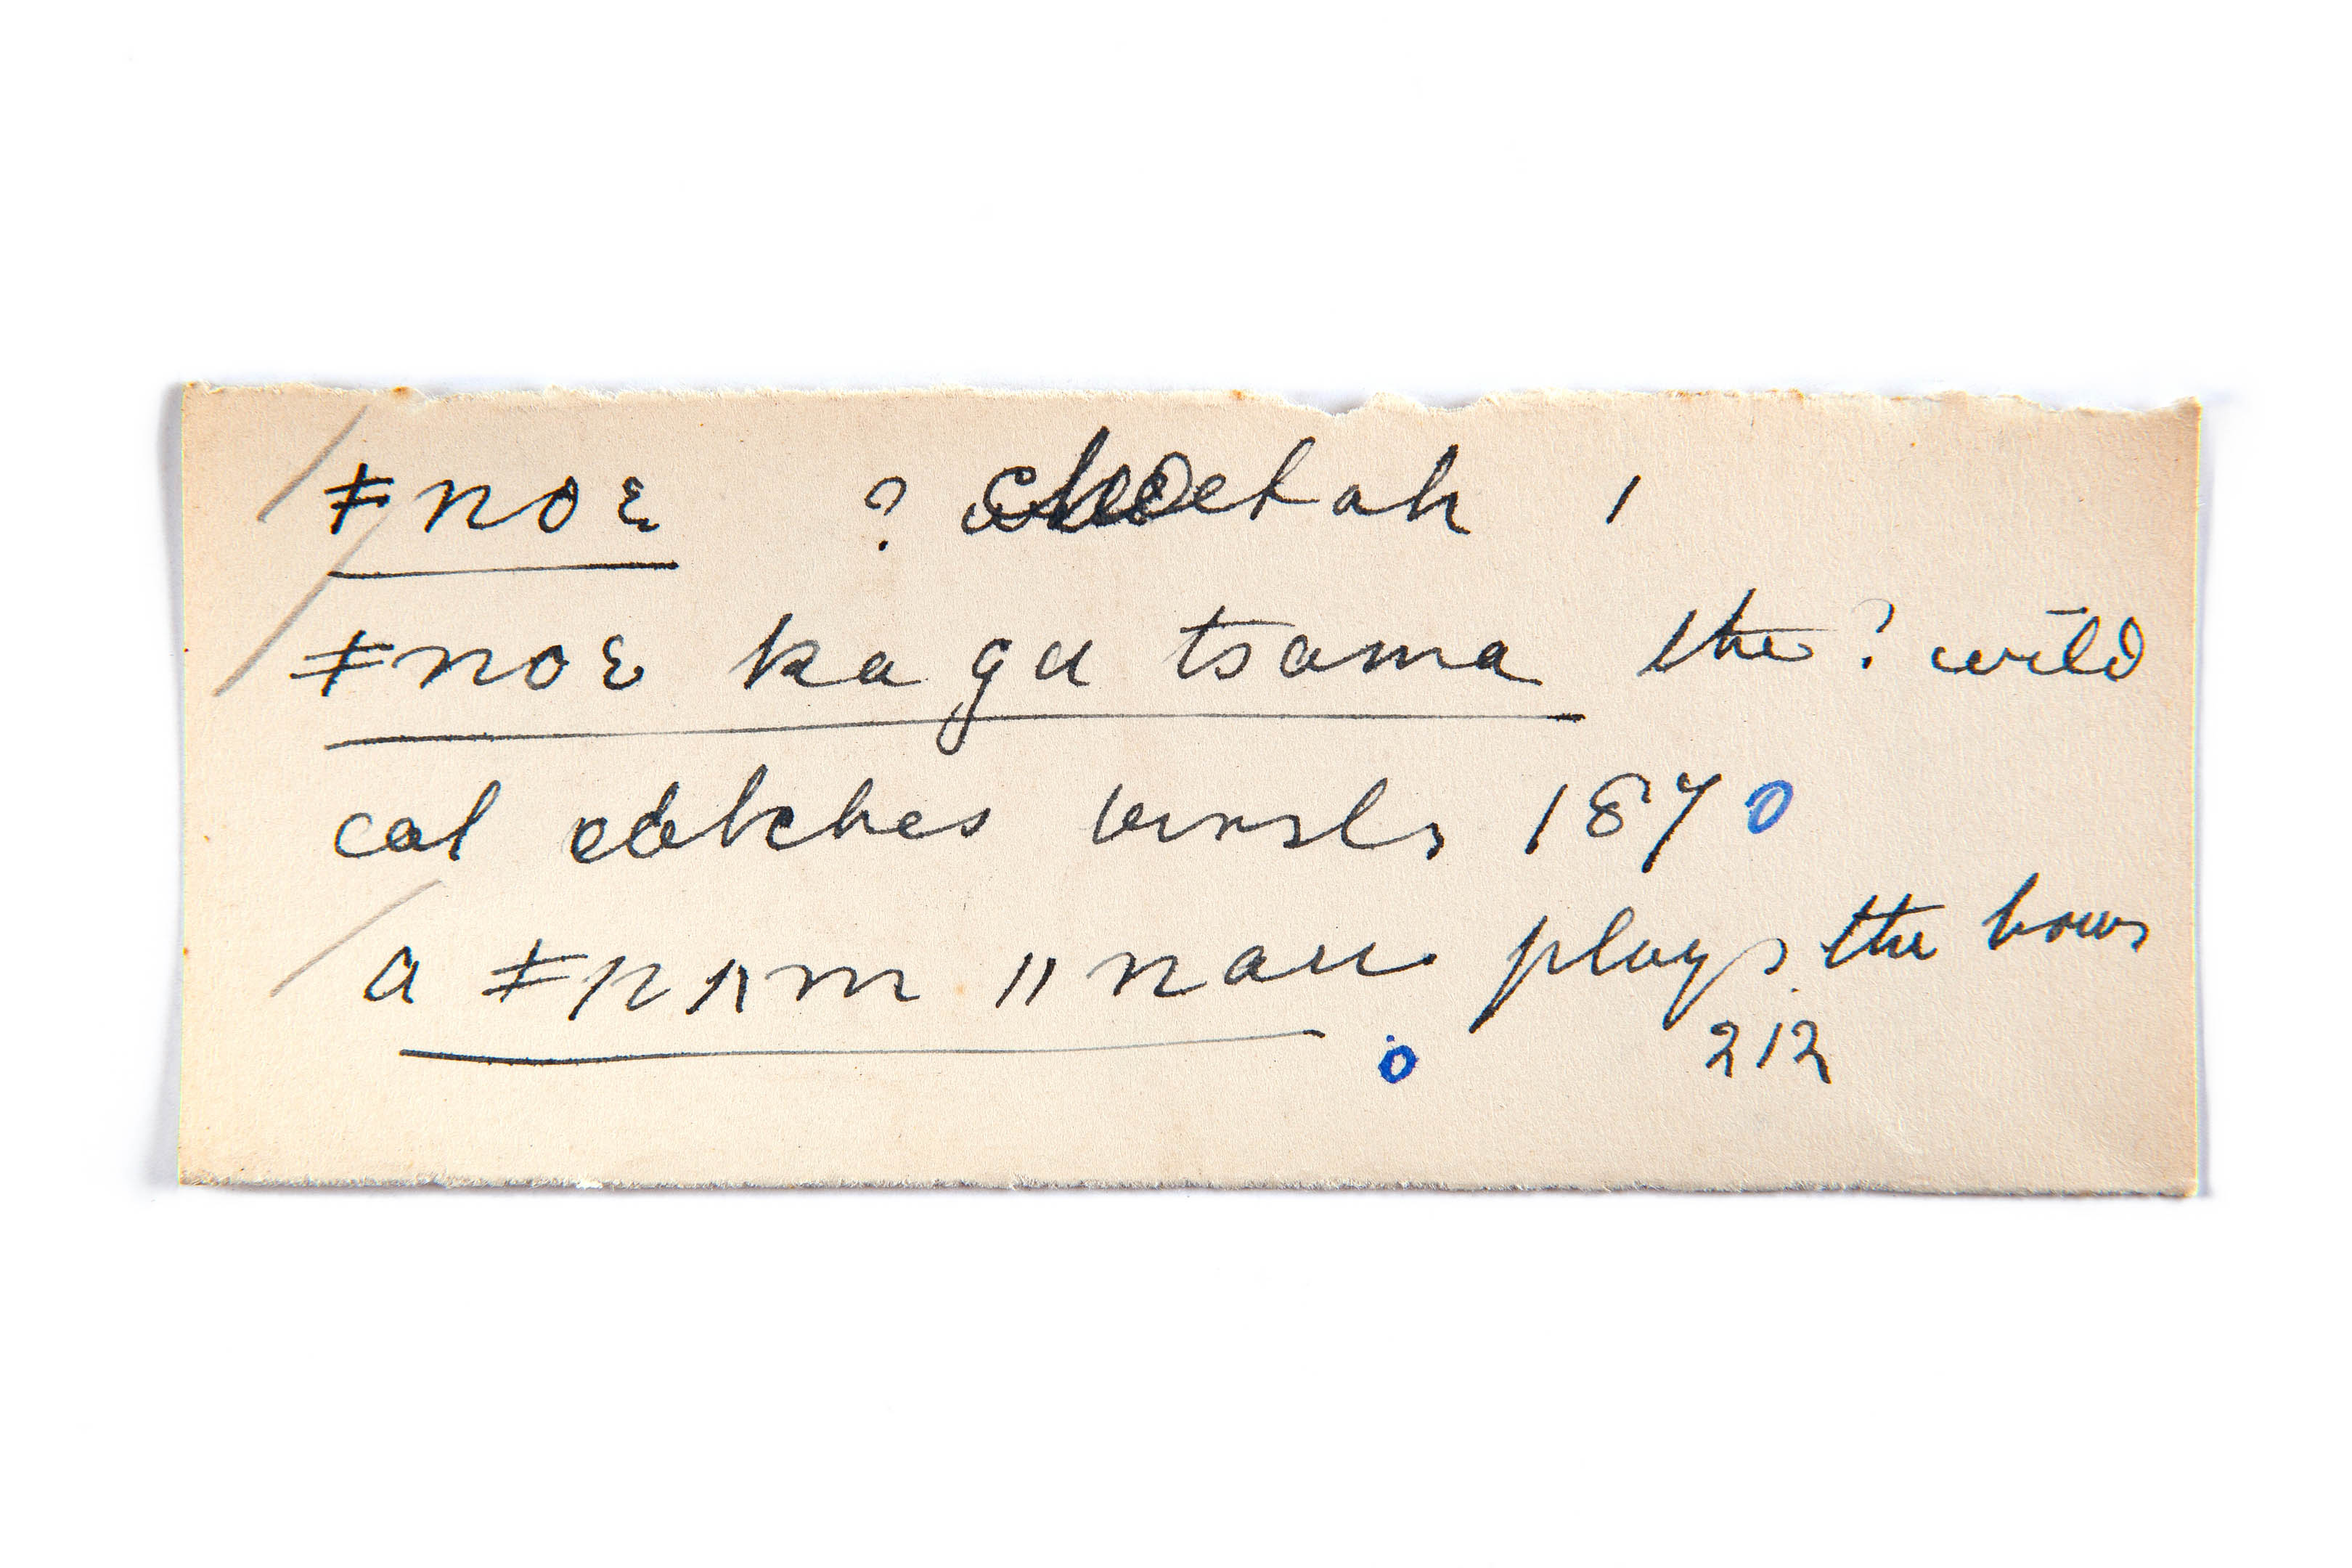 ǂnoɛ ? cheetah ,
ǂnoɛ ka gu tsama the ? wild
cat catches 187 o
a ǂnʌm ǁnau plays the bows
o 212